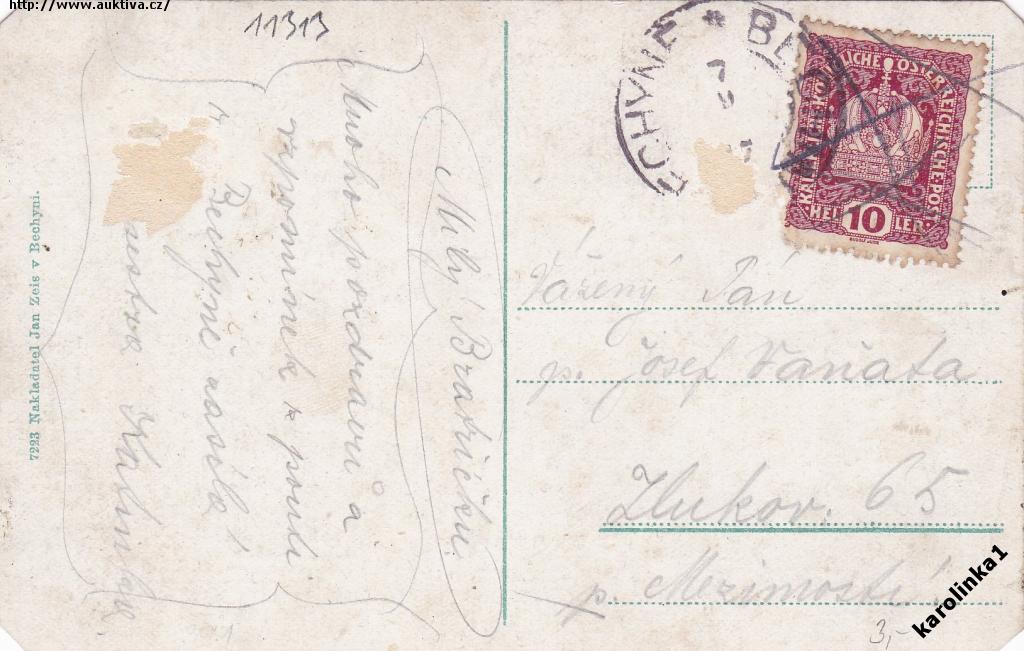 http://www.auktiva.cz/
11313
Milý Bratříčku!
Mnoho pozdravů a
vzpomínek z pouti
z Bechyně zasílá
sestra
7223 Nakladatel Jan Zeis v Bechyni.
BECHYNĚ * BE
KAIS. KÖNIGLICHE ÖSTERREICHISCHE POST
HELLER
10
Vážený Pán
p. Josef Vaňata
Zlukov. 65
p. Mezimostí.
3,-
karolinka1